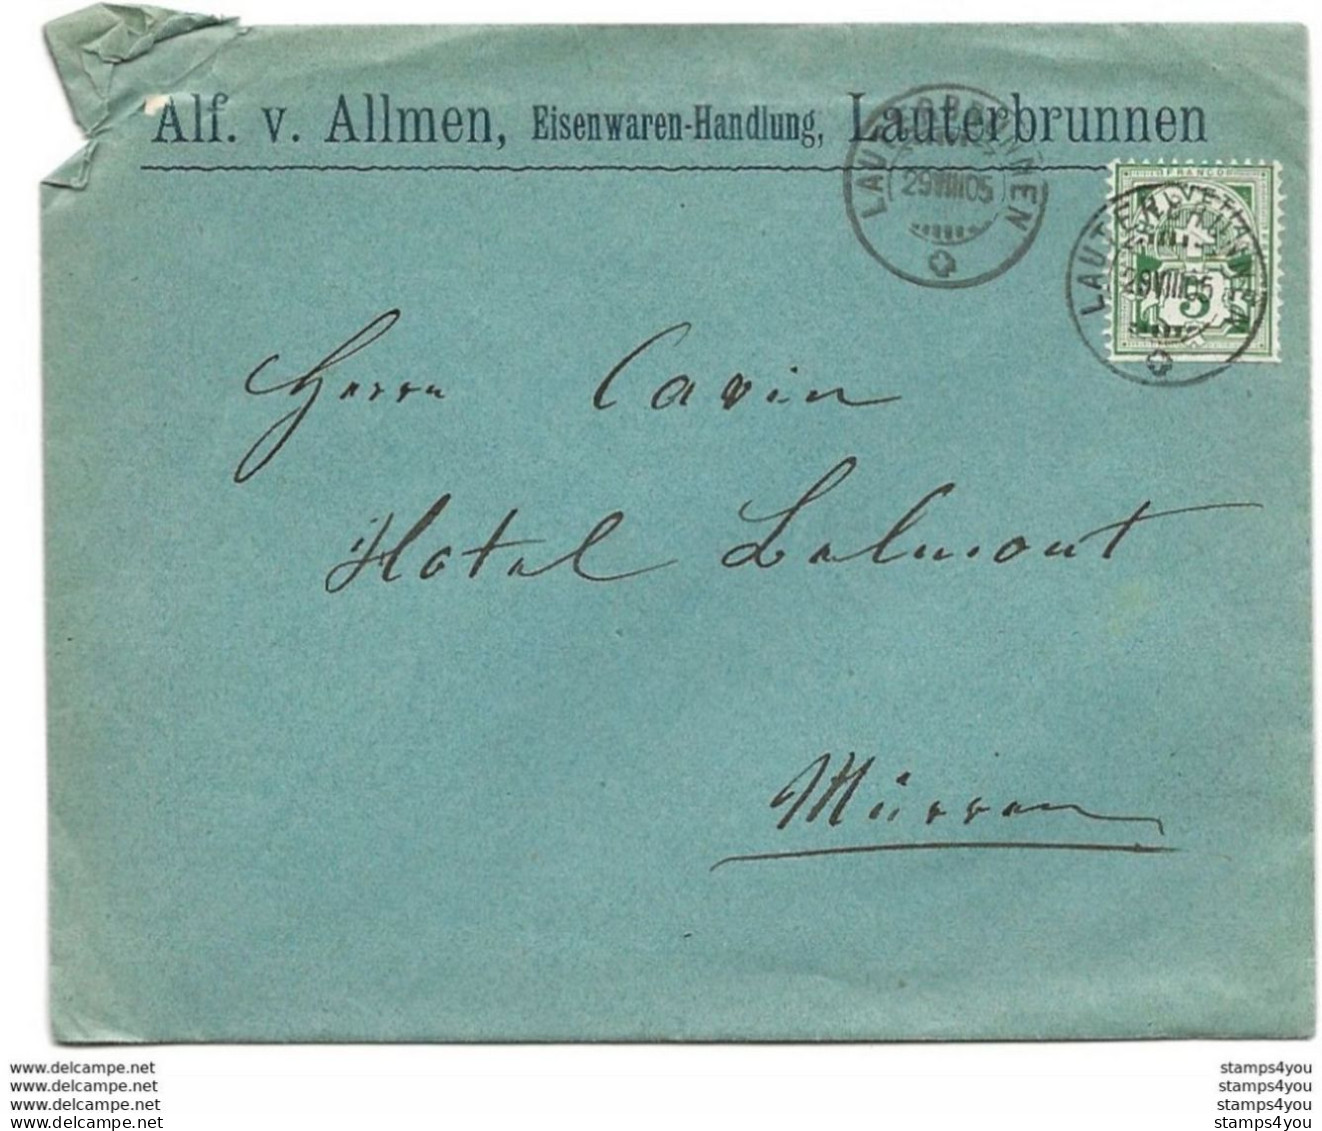 Alf. v. Allmen, Eisenwaren-Handlung, Lauterbrunnen
LAUTERBRUNNEN
29 VIII 05
FRANCO
HELVETIA
5
LAUTERBRUNNEN
29 VIII 05
Herrn Cavin
Hotel Balmont
Mürren
www.delcampe.net
www.delcampe.net
www.delcampe.net
www.delcampe.net
stamps4you
stamps4you
stamps4you
stamps4you